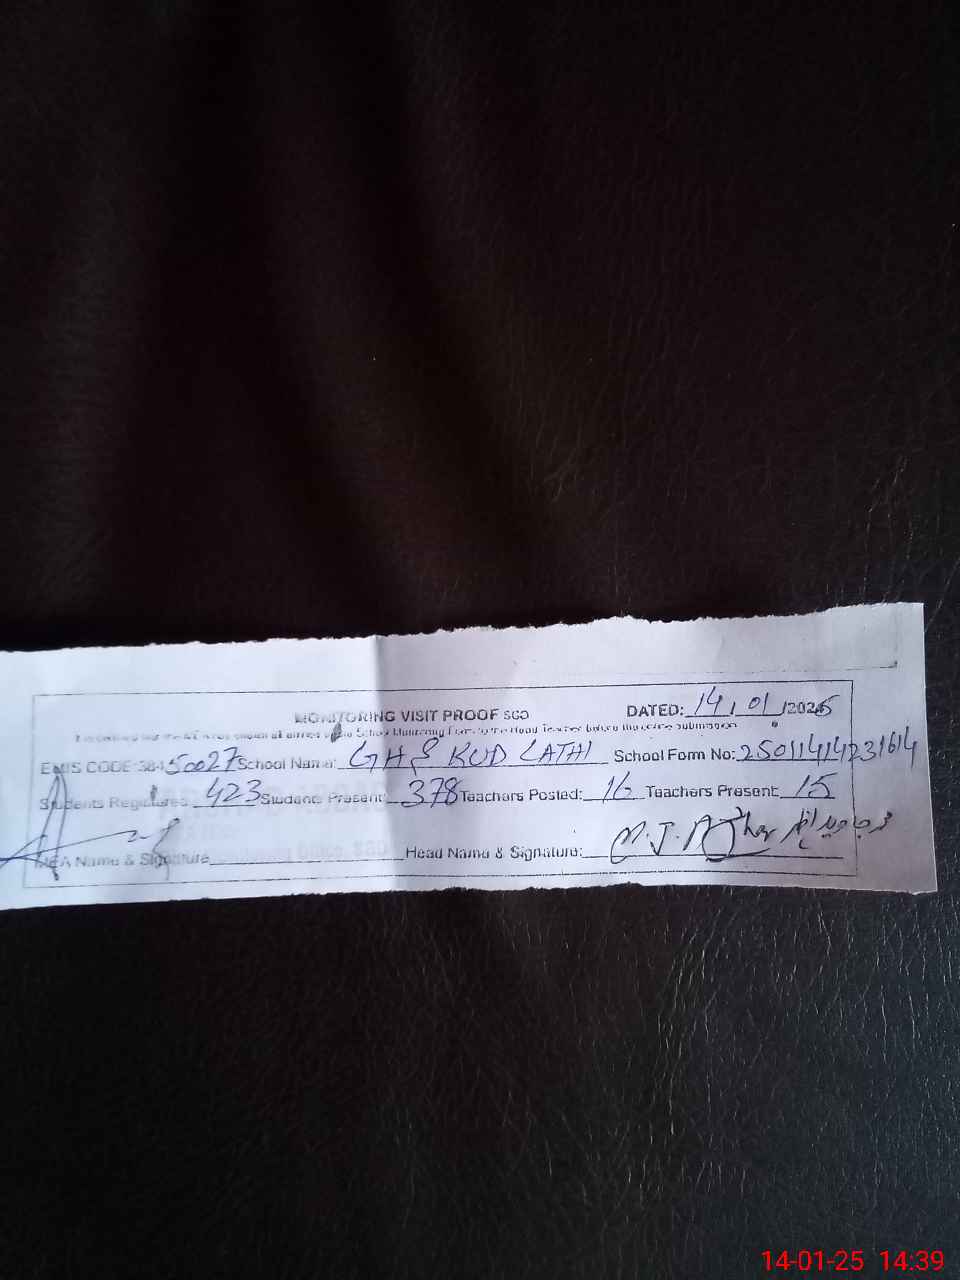 MONITORING VISIT PROOF SGD DATED: 14/01/2025
EMIS CODE:38450027 School Name: GHS KUD LATHI School Form No: 25011414231614
Students Registered: 423 Students Present: 378 Teachers Posted: 16 Teachers Present: 15
MEA Name & Signature Head Name & Signature:
14-01-25 14:39